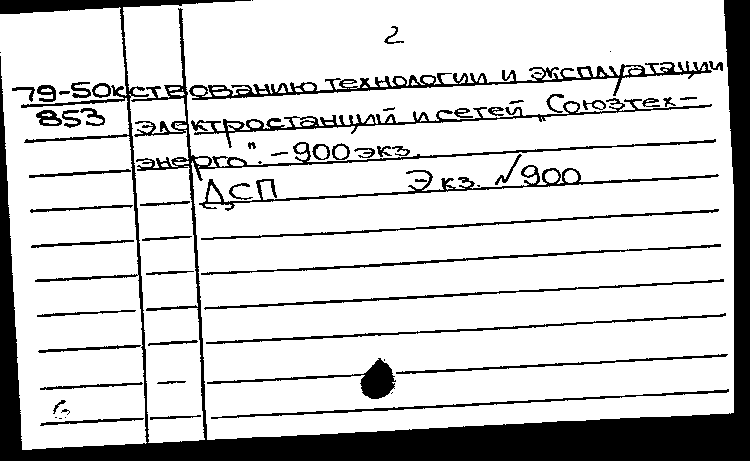 2
79-50к ствованию технологии и эксплуатации
853 электростанций и сетей „Союзтех-
энерго". - 900 экз.
ДСП Экз. №900
6